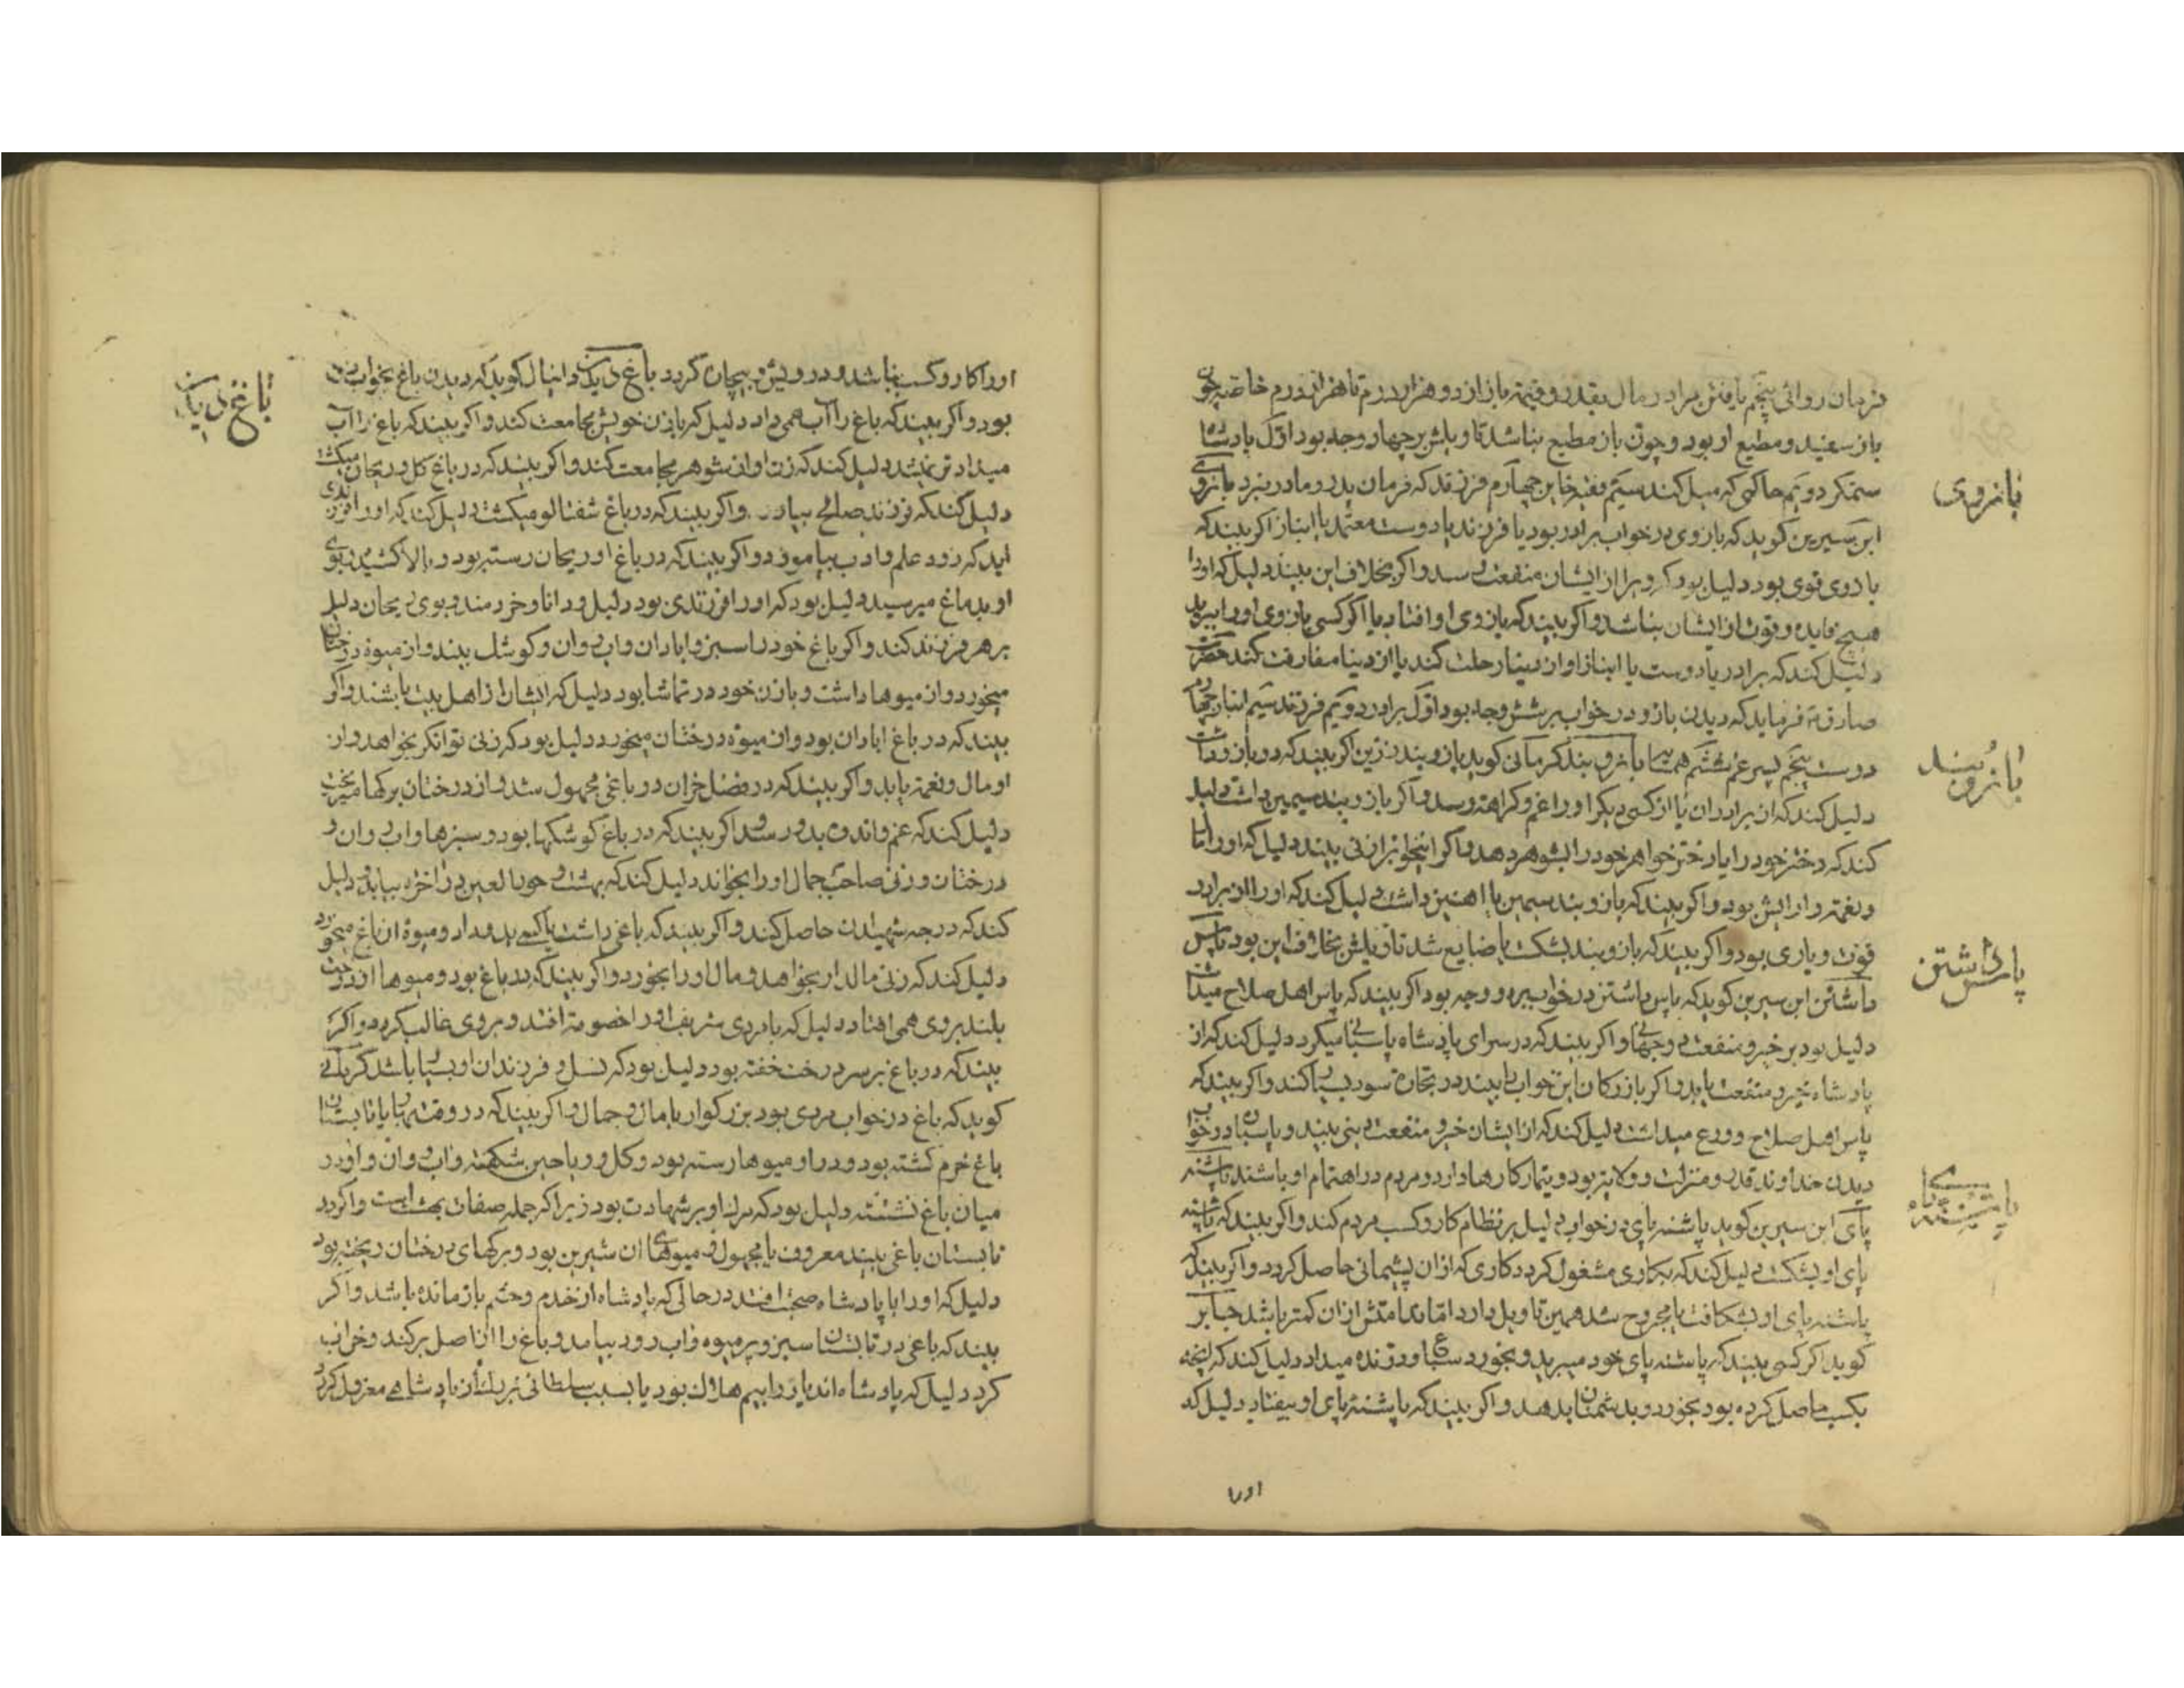 فرمان روائی پنجم یافتن مراد در مال بقدر و قیمة باز از دو هزار درم تا هزار درم خاصه چون
باز سفید و مطیع او بود و چون باز مطیع نباشد تاویلش بر چهار وجه بود اول پادشاه
ستمکر دویم حاکمی که میل کند سیم فقیه خاین چهارم فرزند که فرمان پدر و مادر نبرد بازوی
ابن سیرین کوید که بازوی در خواب برادر بود یا فرزند یا دوست معتمد یا انباز اکر بیند که
بازوی قوی بود دلیل بود که ویرا از ایشان منفعت رسد و اکر بخلاف این بیند دلیل که او را
هیچ فایده و قوت از ایشان نباشد و اکر بیند که بازوی او افتاد یا اکر کسی بازوی او را ببرید
دلیل کند که برادر یا دوست یا انباز او از دنیا رحلت کند یا از دنیا مفارقت کند حضرت
صادق فرماید که دیدن بازو در خواب بر شش وجه بود اول برادر دویم فرزند سیم انباز چهارم
دوست پنجم پسر عم ششم همسا بازو بند کرمانی کوید بازو بند زرین اکر بیند که در بازو داشت
دلیل کند که از برادران یا از کسی دیکر او را غم و کراهة رسد و اکر بازو بند سیمین داشت دلیل
کند که دختر خود را یا دختر خواهر خود را بشوهر دهد و اکر اینخواب زنی بیند دلیل که او را
و نعمة و ارایش بود و اکر بیند که بازو بند سیمین یا اهنین داشت دلیل کند که او را از برادر
قوت و یاری بود و اکر بیند که بازو بند بشکست یا ضایع شد تاویلش بخلاف این بود پاس
داشتن ابن سیرین کوید که پاس داشتن در خواب بر دو وجه بود اکر بیند که پاس اهل صلاح میداشت
دلیل بود بر خیر و منفعت دو جهانی و اکر بیند که در سرای پادشاه پاسبانی میکرد دلیل کند که از
پادشاه خیر و منفعت یابد و اکر بازرکان این خواب بیند در تجارة سود بسیا کند و اکر بیند که
پاس اهل صلاح و ورع میداشت دلیل کند که از ایشان خیر و منفعت دینی بیند و پاسبان در خواب
دیدن خداوند قدر و منزلت و ولایتر بود و تیمار کارها دارد و مردم در اهتمام او باشند پاشنه
پای ابن سیرین کوید پاشنه پای در خواب دلیل بر نظام کار و کسب مردم کند و اکر بیند که پاشنه
پای او بشکست دلیل کند که بکاری مشغول کردد کاری که از ان پشیمانی حاصل کردد و اکر بیند که
پاشنه پای او بشکافت یا مجروح شد همین تاویل دارد اما ندامتش از ان کمتر باشد جابر
کوید اکر کسی بیند که پاشنه پای خود میبرید و بخورد سباع و درنده میداد دلیل کند که انچه
بکسب حاصل کرده بود بخورد و بدشمنان بدهد و اکر بیند که پاشنه پای او بیفتاد دلیل که
اورا
بازوی
بازوبند
پاس داشتن
پاشنه پای
او را کار و کسب نباشد و درویش و بیچاره کردد باغ دیدن دانیال کوید که دیدن باغ بخواب زن
بود و اکر بیند که باغ را آب همی داد دلیل که با زن خویش مجامعت کند و اکر بیند که باغ را آب
میداد تر نمیشد دلیل کند که زن او از شوهر مجامعت کند و اکر بیند که در باغ کل و ریحان میکشت
دلیل کند که فرزند صالح بیارد و اکر بیند که در باغ شفتالو میکشت دلیل کند که او را فرزندی
اید که زود علم و ادب بیاموزد و اکر بیند که در باغ او ریحان رسته بود و بالا کشیده و بوی
او بدماغ میرسید دلیل بود که او را فرزندی بود دلیل و دانا و خردمند و بوی ریحان دلیل
بر هر فرزند کند و اکر باغ خود را سبز و ابادان و اب روان و کوشک بیند و از میوه درختان
میخورد و از میوها داشت و با زن خود در تماشا بود دلیل که ایشان از اهل بهشت باشند و اکر
بیند که در باغ ابادان بود و از میوه درختان میخورد دلیل بود که زنی توانکر بخواهد و از
او مال و نعمة یابد و اکر بیند که در فصل خزان در باغی مجهول شد و از درختان برکها میریخت
دلیل کند که غم و اندوه بدو رسد و اکر بیند که در باغ کوشکها بود و سبزها و اب روان و
درختان و زنی صاحب جمال او را بخواند دلیل کند که بهشت و حور العین در اخرة بیابد و دلیل
کند که درجه شهیدان حاصل کند و اکر بیند که باغی داشت یا کسی بدو داد و میوه ان باغ میخورد
دلیل کند که زنی مالدار بخواهد و مال او را بخورد و اکر بیند که در باغ بود و میوها از درخت
بلند بروی همی افتاد دلیل که با مردی شریف او را خصومة افتد و بروی غالب کردد و اکر
بیند که در باغ بر سر درخت خفته بود دلیل بود که نسل و فرزندان او بسیا باشد کرمانی
کوید که باغ در خواب مردی بود بزرکوار با مال و جمال و اکر بیند که در وقت بهار یا تابستان
باغ خرم کشته بود و در او میوها رسته بود و کل و ریاحین شکفته و اب روان و او در
میان باغ نشسته دلیل بود که مرک او بر شهادت بود زیرا که جمله صفات بهشت است و اکر در
تابستان باغی بیند معروف یا مجهول و میوهای ان شیرین بود و برکهای درختان ریخته بود
دلیل که او را با پادشاه صحبت افتد در حالی که پادشاه از خدم و حشم باز مانده باشد و اکر
بیند که باغی در تابستان سبز و پر میوه و اب رود بیامد و باغ را از اصل برکند و خراب
کرد دلیل که پادشاه اندیار را بیم هلاک بود یا بسبب سلطانی بزرک از پادشاهی معزول کردد
باغ دیدن